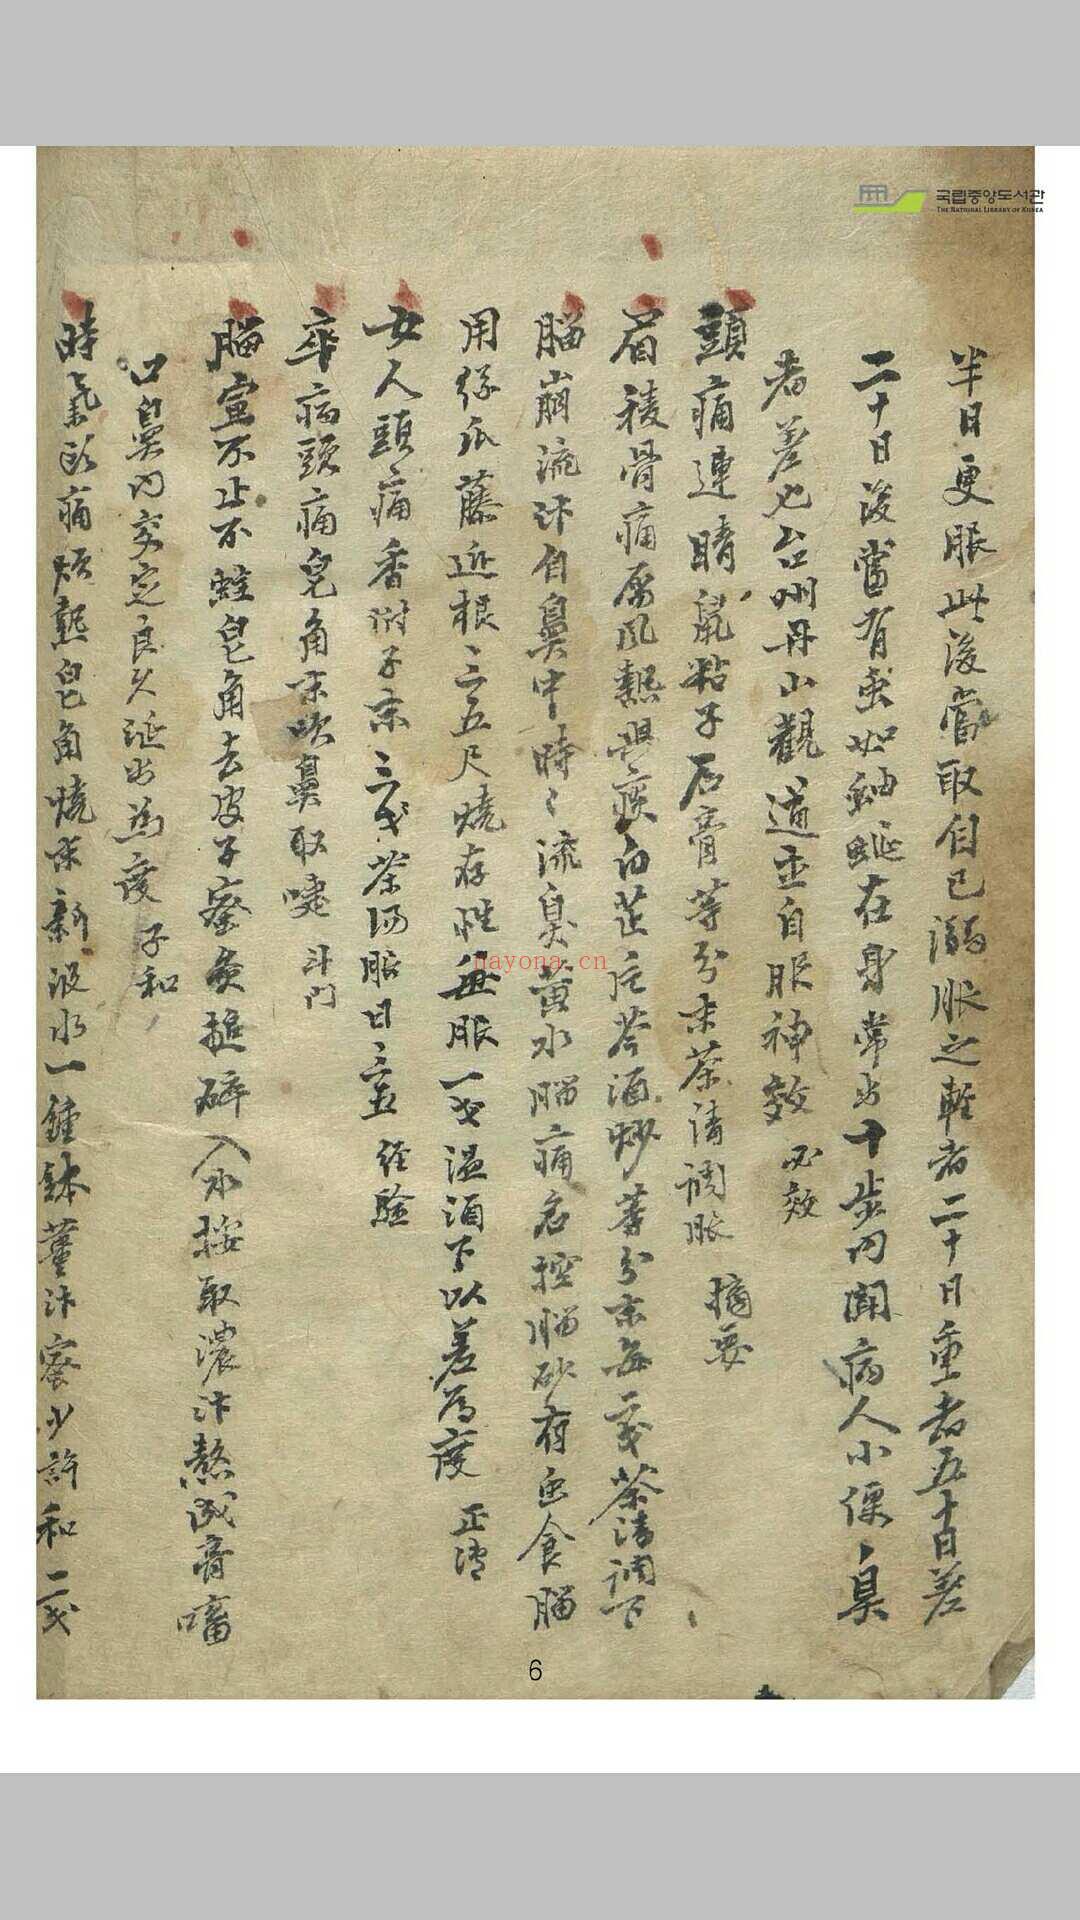 국립중앙도서관
THE NATIONAL LIBRARY OF KOREA
半日更服此後當取自己溺服之輕者二十日重者五十日差
二十日後嘗有虫如蚰蜒在身常出十步内聞病人小便臭
者差也台州丹山觀道士自服神效 必效
頭痛連睛鼠粘子石膏等分末茶淸調服 摘要
眉稜骨痛屬風熱與痰白芷片芩酒炒等分末每二戔茶淸調下
腦崩流汁自鼻中時〻流臭黃水腦痛名控腦砂有虫食腦
用絲瓜藤近根三五尺燒存性每服一戔温酒下以差爲度 正傳
女人頭痛香附子末三戔茶湯服日三五 經驗
卒病頭痛皂角末吹鼻取嚏 斗門
腦宣不止不蛀皂角去皮子蜜灸搥碎入水挼取濃汁熬成膏㗜
口鼻内交定良久涎出爲度 子和
時氣頭痛煩熱皂角燒末新汲水一鍾薑汁蜜少許和二戔
nayona.cn
6